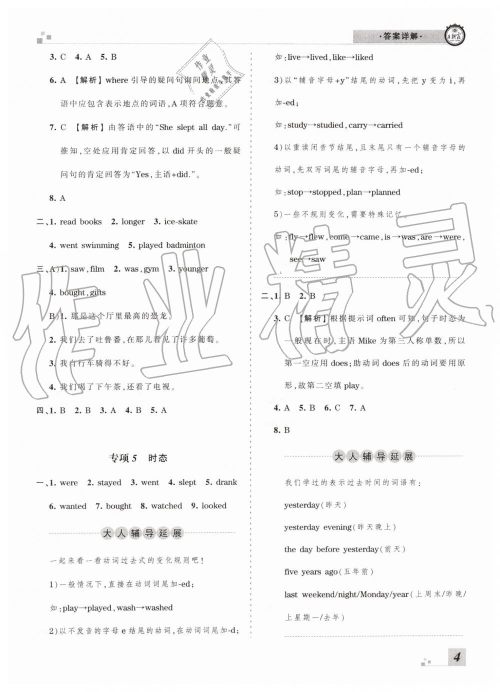 ·答案详解·
3. C 4. A 5. B
6. A 【解析】where 引导的疑问句询问地点,其答
语中应包含表示地点的词语,A 项符合题意。
7. C 【解析】由答语中的“She slept all day.”可
推知,空处应用肯定回答,以 did 开头的一般疑
问句的肯定回答为“Yes, 主语+did.”。
8. A
二、1. read books 2. longer 3. ice-skate
4. went swimming 5. played badminton
三、A) 1. saw, film 2. was, gym 3. younger
4. bought, gifts
B. 1. 那是这个厅里最高的恐龙。
2. 我们去了吐鲁番,在那儿看见了许多葡萄。
3. 我自行车骑得不好。
4. 我们喝了下午茶,还看了电视。
四、1. B 2. B 3. A 4. B 5. A
专项 5 时态
一、1. were 2. stayed 3. went 4. slept 5. drank
6. wanted 7. bought 8. watched 9. looked
大人辅导延展
一起来看一看动词过去式的变化规则吧!
1)一般情况下,直接在动词词尾加-ed;
如:play→played, wash→washed
2)以不发音的字母 e 结尾的动词,在动词词尾加-d;
如:live→lived, like→liked
3)以“辅音字母+y”结尾的动词,先把 y 变为 i,再
加-ed;
如:study→studied, carry→carried
4)以重读闭音节结尾,且末尾只有一个辅音字母的
动词,先双写词尾的辅音字母,再加-ed;
如:stop→stopped, plan→planned
5)一些不规则变化,需要特殊记忆。
如:fly→flew, come→came, is→was, are→were,
see→saw
二、1. B 2. B
3. C 【解析】根据提示词 often 可知,句子时态为
一般现在时,主语 Mike 为第三人称单数,所以
第一空应用 does;助动词 does 后的动词要用原
形,故第二空填 play。
4. A 5. B 6. C 7. A
8. B
大人辅导延展
我们学过的表示过去时间的词语有:
yesterday(昨天)
yesterday evening(昨天晚上)
the day before yesterday(前天)
five years ago(五年前)
last weekend/night/Monday/year(上周末/昨晚/
上星期一/去年)
4
作业精灵